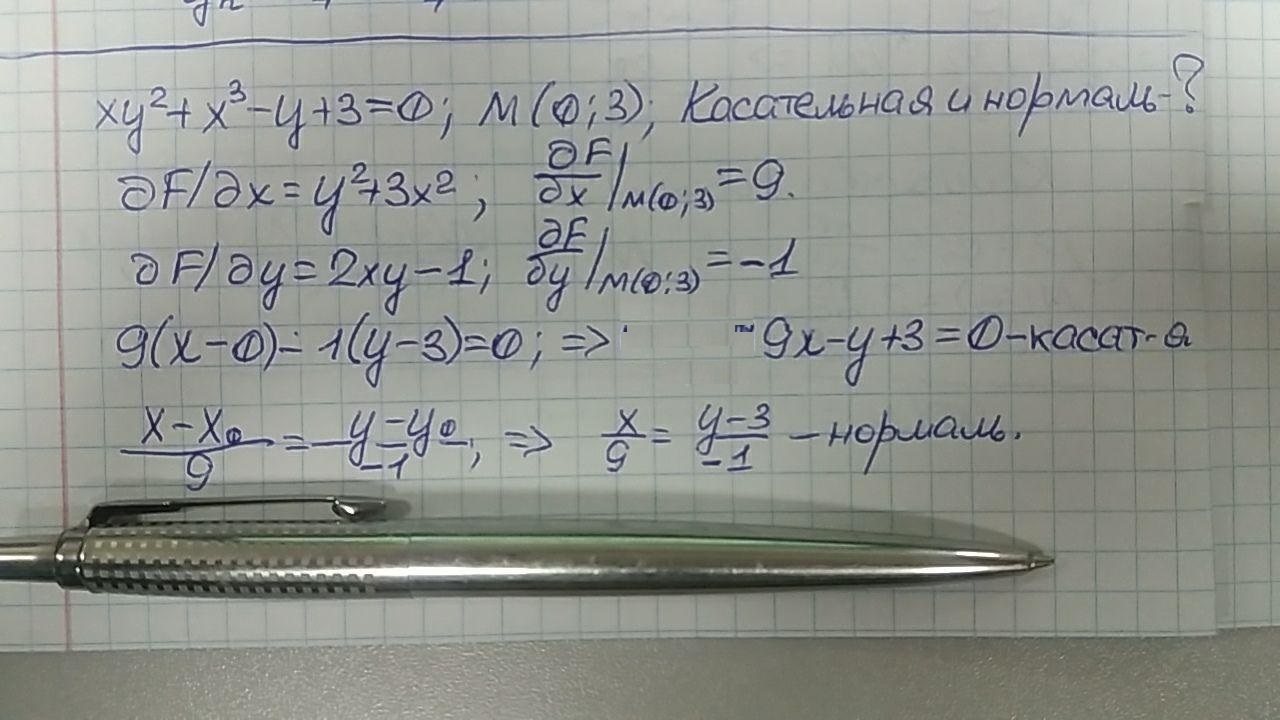 xy²+x³-y+3=0; M(0;3); Касательная и нормаль-?
∂F/∂x=y²+3x²; ∂F/∂x|M(0;3)=9.
∂F/∂y=2xy-1; ∂F/∂y|M(0;3)=-1
9(x-0)-1(y-3)=0; => 9x-y+3=0-касат-я
x-x₀/9=y-y₀/-1; => x/9=y-3/-1 -нормаль.